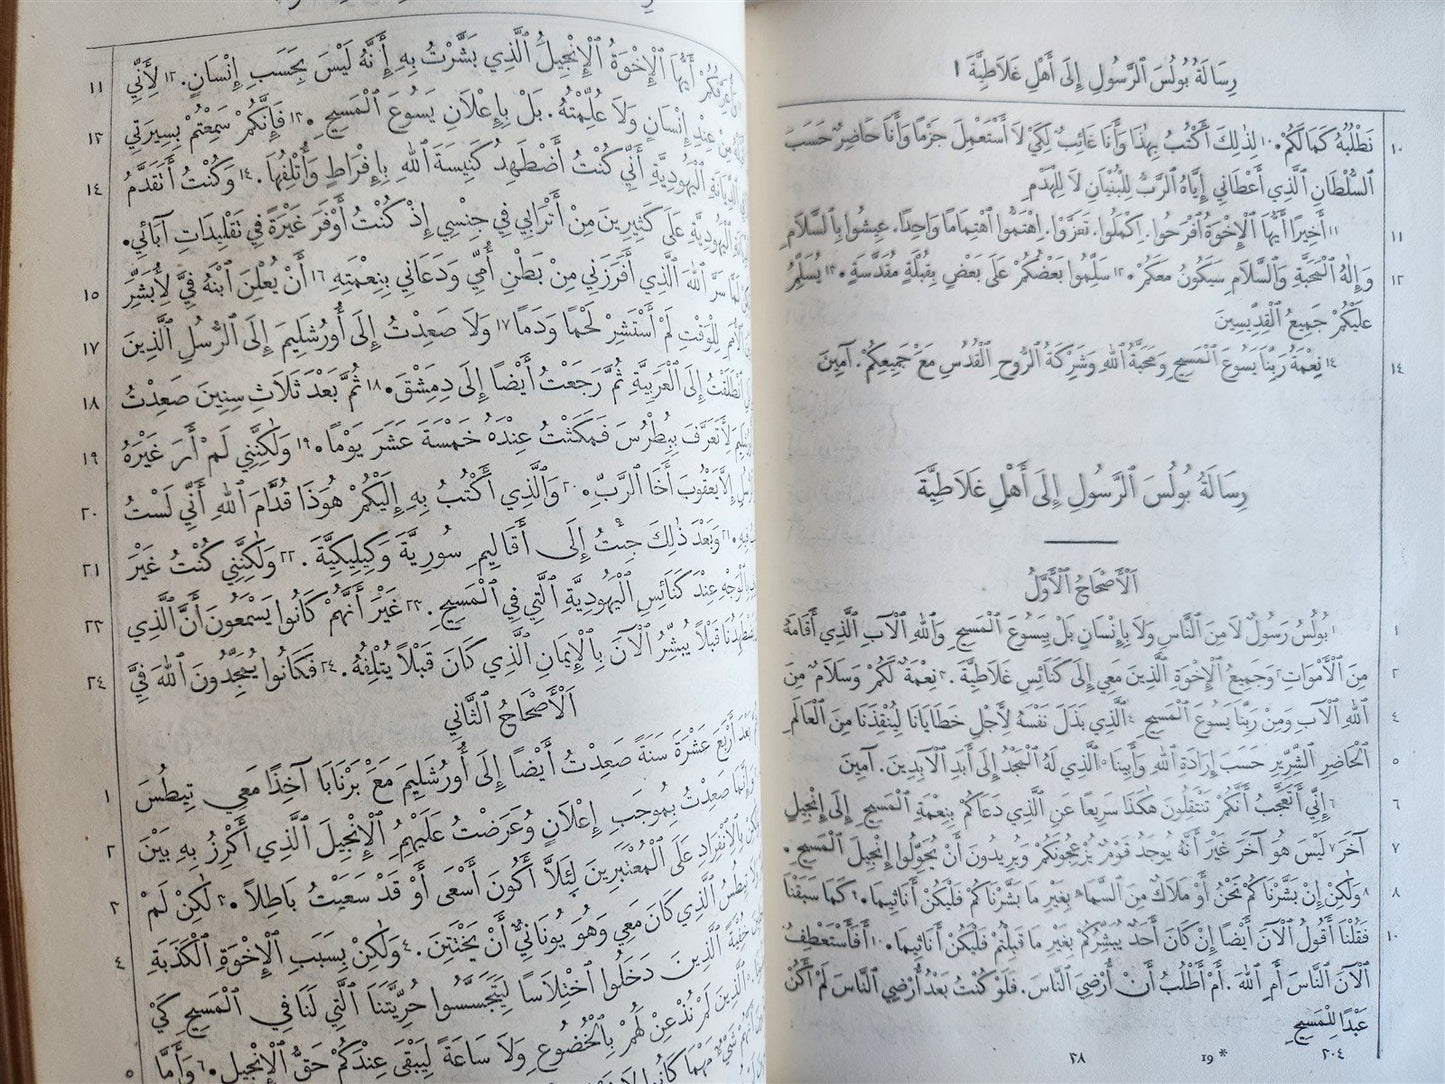 رِسَالَةُ بُولُسَ ٱلرَّسُولِ إِلَى أَهْلِ غَلَاطِيَّةَ ١
١٠ نَطْلُبُهُ كَمَالَكُمْ. ١٠ لِذٰلِكَ أَكْتُبُ بِهٰذَا وَأَنَا غَائِبٌ لِكَيْ لَا أَسْتَعْمِلَ جَزْمًا وَأَنَا حَاضِرٌ حَسَبَ
ٱلسُّلْطَانِ ٱلَّذِي أَعْطَانِي إِيَّاهُ ٱلرَّبُّ لِلْبُنْيَانِ لَا لِلْهَدْمِ
١١ ١١ أَخِيرًا أَيُّهَا ٱلْإِخْوَةُ ٱفْرَحُوا. اِكْمَلُوا. تَعَزَّوْا. اِهْتَمُّوا ٱهْتِمَامًا وَاحِدًا. عِيشُوا بِٱلسَّلَامِ
١٢ وَإِلٰهُ ٱلْمَحَبَّةِ وَٱلسَّلَامِ سَيَكُونُ مَعَكُمْ. ١٢ سَلِّمُوا بَعْضُكُمْ عَلَى بَعْضٍ بِقُبْلَةٍ مُقَدَّسَةٍ. ١٣ يُسَلِّمُ
عَلَيْكُمْ جَمِيعُ ٱلْقِدِّيسِينَ
١٤ ١٤ نِعْمَةُ رَبِّنَا يَسُوعَ ٱلْمَسِيحِ وَمَحَبَّةُ ٱللهِ وَشَرِكَةُ ٱلرُّوحِ ٱلْقُدُسِ مَعَ جَمِيعِكُمْ. آمِينَ
رِسَالَةُ بُولُسَ ٱلرَّسُولِ إِلَى أَهْلِ غَلَاطِيَّةَ
اَلْأَصْحَاحُ ٱلْأَوَّلُ
١ ١ بُولُسُ رَسُولٌ لَا مِنَ ٱلنَّاسِ وَلَا بِإِنْسَانٍ بَلْ بِيَسُوعَ ٱلْمَسِيحِ وَٱللهِ ٱلْآبِ ٱلَّذِي أَقَامَهُ
٢ مِنَ ٱلْأَمْوَاتِ ٢ وَجَمِيعُ ٱلْإِخْوَةِ ٱلَّذِينَ مَعِي إِلَى كَنَائِسِ غَلَاطِيَّةَ. ٣ نِعْمَةٌ لَكُمْ وَسَلَامٌ مِنَ
٤ ٱللهِ ٱلْآبِ وَمِنْ رَبِّنَا يَسُوعَ ٱلْمَسِيحِ ٤ ٱلَّذِي بَذَلَ نَفْسَهُ لِأَجْلِ خَطَايَانَا لِيُنْقِذَنَا مِنَ ٱلْعَالَمِ
٥ ٱلْحَاضِرِ ٱلشِّرِّيرِ حَسَبَ إِرَادَةِ ٱللهِ وَأَبِينَا ٥ ٱلَّذِي لَهُ ٱلْمَجْدُ إِلَى أَبَدِ ٱلْآبِدِينَ. آمِينَ
٦ ٦ إِنِّي أَتَعَجَّبُ أَنَّكُمْ تَنْتَقِلُونَ هٰكَذَا سَرِيعًا عَنِ ٱلَّذِي دَعَاكُمْ بِنِعْمَةِ ٱلْمَسِيحِ إِلَى إِنْجِيلٍ
٧ آخَرَ ٧ لَيْسَ هُوَ آخَرَ غَيْرَ أَنَّهُ يُوجَدُ قَوْمٌ يُزْعِجُونَكُمْ وَيُرِيدُونَ أَنْ يُحَوِّلُوا إِنْجِيلَ ٱلْمَسِيحِ.
٨ ٨ وَلٰكِنْ إِنْ بَشَّرْنَاكُمْ نَحْنُ أَوْ مَلَاكٌ مِنَ ٱلسَّمَاءِ بِغَيْرِ مَا بَشَّرْنَاكُمْ فَلْيَكُنْ أَنَاثِيمَا. ٩ كَمَا سَبَقْنَا
١٠ فَقُلْنَا أَقُولُ ٱلْآنَ أَيْضًا إِنْ كَانَ أَحَدٌ يُبَشِّرُكُمْ بِغَيْرِ مَا قَبِلْتُمْ فَلْيَكُنْ أَنَاثِيمَا. ١٠ أَفَأَسْتَعْطِفُ
ٱلْآنَ ٱلنَّاسَ أَمِ ٱللهَ. أَمْ أَطْلُبُ أَنْ أُرْضِيَ ٱلنَّاسَ. فَلَوْ كُنْتُ بَعْدُ أُرْضِي ٱلنَّاسَ لَمْ أَكُنْ
عَبْدًا لِلْمَسِيحِ
٢٠٤ 19 * ٢٨
١١ وَأُعَرِّفُكُمْ أَيُّهَا ٱلْإِخْوَةُ ٱلْإِنْجِيلَ ٱلَّذِي بَشَّرْتُ بِهِ أَنَّهُ لَيْسَ بِحَسَبِ إِنْسَانٍ. ١٢ لِأَنِّي
١٢ مِنْ عِنْدِ إِنْسَانٍ وَلَا عُلِّمْتُهُ. بَلْ بِإِعْلَانِ يَسُوعَ ٱلْمَسِيحِ. ١٣ فَإِنَّكُمْ سَمِعْتُمْ بِسِيرَتِي
١٤ ٱلدِّيَانَةِ ٱلْيَهُودِيَّةِ أَنِّي كُنْتُ أَضْطَهِدُ كَنِيسَةَ ٱللهِ بِإِفْرَاطٍ وَأُتْلِفُهَا. ١٤ وَكُنْتُ أَتَقَدَّمُ
ٱلْيَهُودِيَّةِ عَلَى كَثِيرِينَ مِنْ أَتْرَابِي فِي جِنْسِي إِذْ كُنْتُ أَوْفَرَ غَيْرَةً فِي تَقْلِيدَاتِ آبَائِي.
١٥ لَمَّا سَرَّ ٱللهَ ٱلَّذِي أَفْرَزَنِي مِنْ بَطْنِ أُمِّي وَدَعَانِي بِنِعْمَتِهِ ١٦ أَنْ يُعْلِنَ ٱبْنَهُ فِيَّ لِأُبَشِّرَ
١٧ ٱلْأُمَمِ لِلْوَقْتِ لَمْ أَسْتَشِرْ لَحْمًا وَدَمًا ١٧ وَلَا صَعِدْتُ إِلَى أُورُشَلِيمَ إِلَى ٱلرُّسُلِ ٱلَّذِينَ
١٨ ٱنْطَلَقْتُ إِلَى ٱلْعَرَبِيَّةِ ثُمَّ رَجَعْتُ أَيْضًا إِلَى دِمَشْقَ. ١٨ ثُمَّ بَعْدَ ثَلَاثِ سِنِينَ صَعِدْتُ
١٩ لِأَتَعَرَّفَ بِبُطْرُسَ فَمَكَثْتُ عِنْدَهُ خَمْسَةَ عَشَرَ يَوْمًا. ١٩ وَلٰكِنَّنِي لَمْ أَرَ غَيْرَهُ
٢٠ إِلَّا يَعْقُوبَ أَخَا ٱلرَّبِّ. ٢٠ وَٱلَّذِي أَكْتُبُ بِهِ إِلَيْكُمْ هُوَذَا قُدَّامَ ٱللهِ أَنِّي لَسْتُ
٢١ فِيهِ. ٢١ وَبَعْدَ ذٰلِكَ جِئْتُ إِلَى أَقَالِيمِ سُورِيَّةَ وَكِيلِيكِيَّةَ. ٢٢ وَلٰكِنَّنِي كُنْتُ غَيْرَ
٢٣ بِٱلْوَجْهِ عِنْدَ كَنَائِسِ ٱلْيَهُودِيَّةِ ٱلَّتِي فِي ٱلْمَسِيحِ. ٢٣ غَيْرَ أَنَّهُمْ كَانُوا يَسْمَعُونَ أَنَّ ٱلَّذِي
٢٤ قَبْلًا يُبَشِّرُ ٱلْآنَ بِٱلْإِيمَانِ ٱلَّذِي كَانَ قَبْلًا يُتْلِفُهُ. ٢٤ فَكَانُوا يُمَجِّدُونَ ٱللهَ فِيَّ
اَلْأَصْحَاحُ ٱلثَّانِي
١ بَعْدَ أَرْبَعَ عَشْرَةَ سَنَةً صَعِدْتُ أَيْضًا إِلَى أُورُشَلِيمَ مَعَ بَرْنَابَا آخِذًا مَعِي تِيطُسَ
٢ وَإِنَّمَا صَعِدْتُ بِمُوجَبِ إِعْلَانٍ وَعَرَضْتُ عَلَيْهِمِ ٱلْإِنْجِيلَ ٱلَّذِي أَكْرِزُ بِهِ بَيْنَ
٣ بِٱلِٱنْفِرَادِ عَلَى ٱلْمُعْتَبَرِينَ لِئَلَّا أَكُونَ أَسْعَى أَوْ قَدْ سَعَيْتُ بَاطِلًا. ٣ لٰكِنْ لَمْ
٤ تِيطُسُ ٱلَّذِي كَانَ مَعِي وَهُوَ يُونَانِيٌّ أَنْ يَخْتَتِنَ. ٤ وَلٰكِنْ بِسَبَبِ ٱلْإِخْوَةِ ٱلْكَذَبَةِ
خُفْيَةً ٱلَّذِينَ دَخَلُوا ٱخْتِلَاسًا لِيَتَجَسَّسُوا حُرِّيَّتَنَا ٱلَّتِي لَنَا فِي ٱلْمَسِيحِ كَيْ
ٱلَّذِينَ لَمْ نُذْعِنْ لَهُمْ بِٱلْخُضُوعِ وَلَا سَاعَةً لِيَبْقَى عِنْدَكُمْ حَقُّ ٱلْإِنْجِيلِ. ٦ وَأَمَّا
شَيْءٌ مَهْمَا كَانُوا